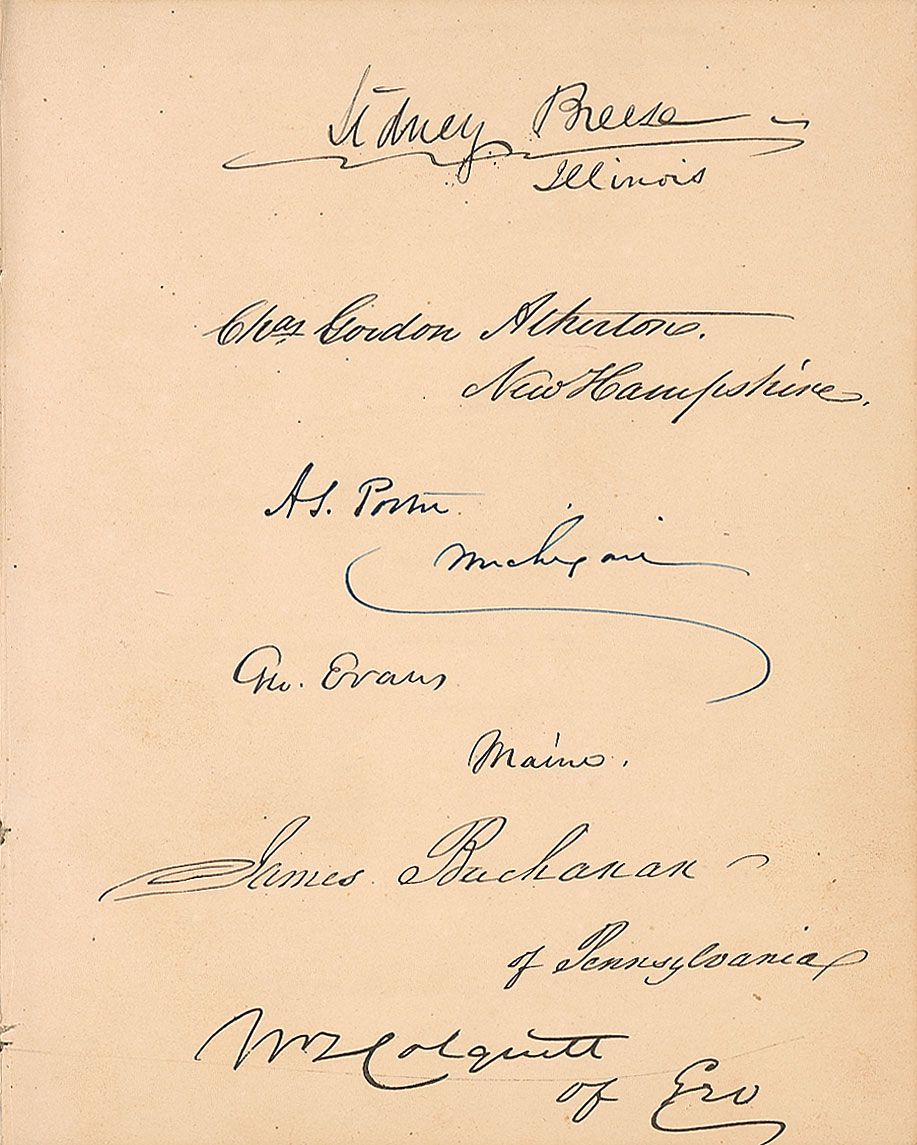 Sidney Breese
Illinois
Chas Gordon Atherton.
New Hampshire.
A S. Porter
Michigan
Geo. Evans
Maine.
James Buchanan
of Pennsylvania
Colquitt
of Geo